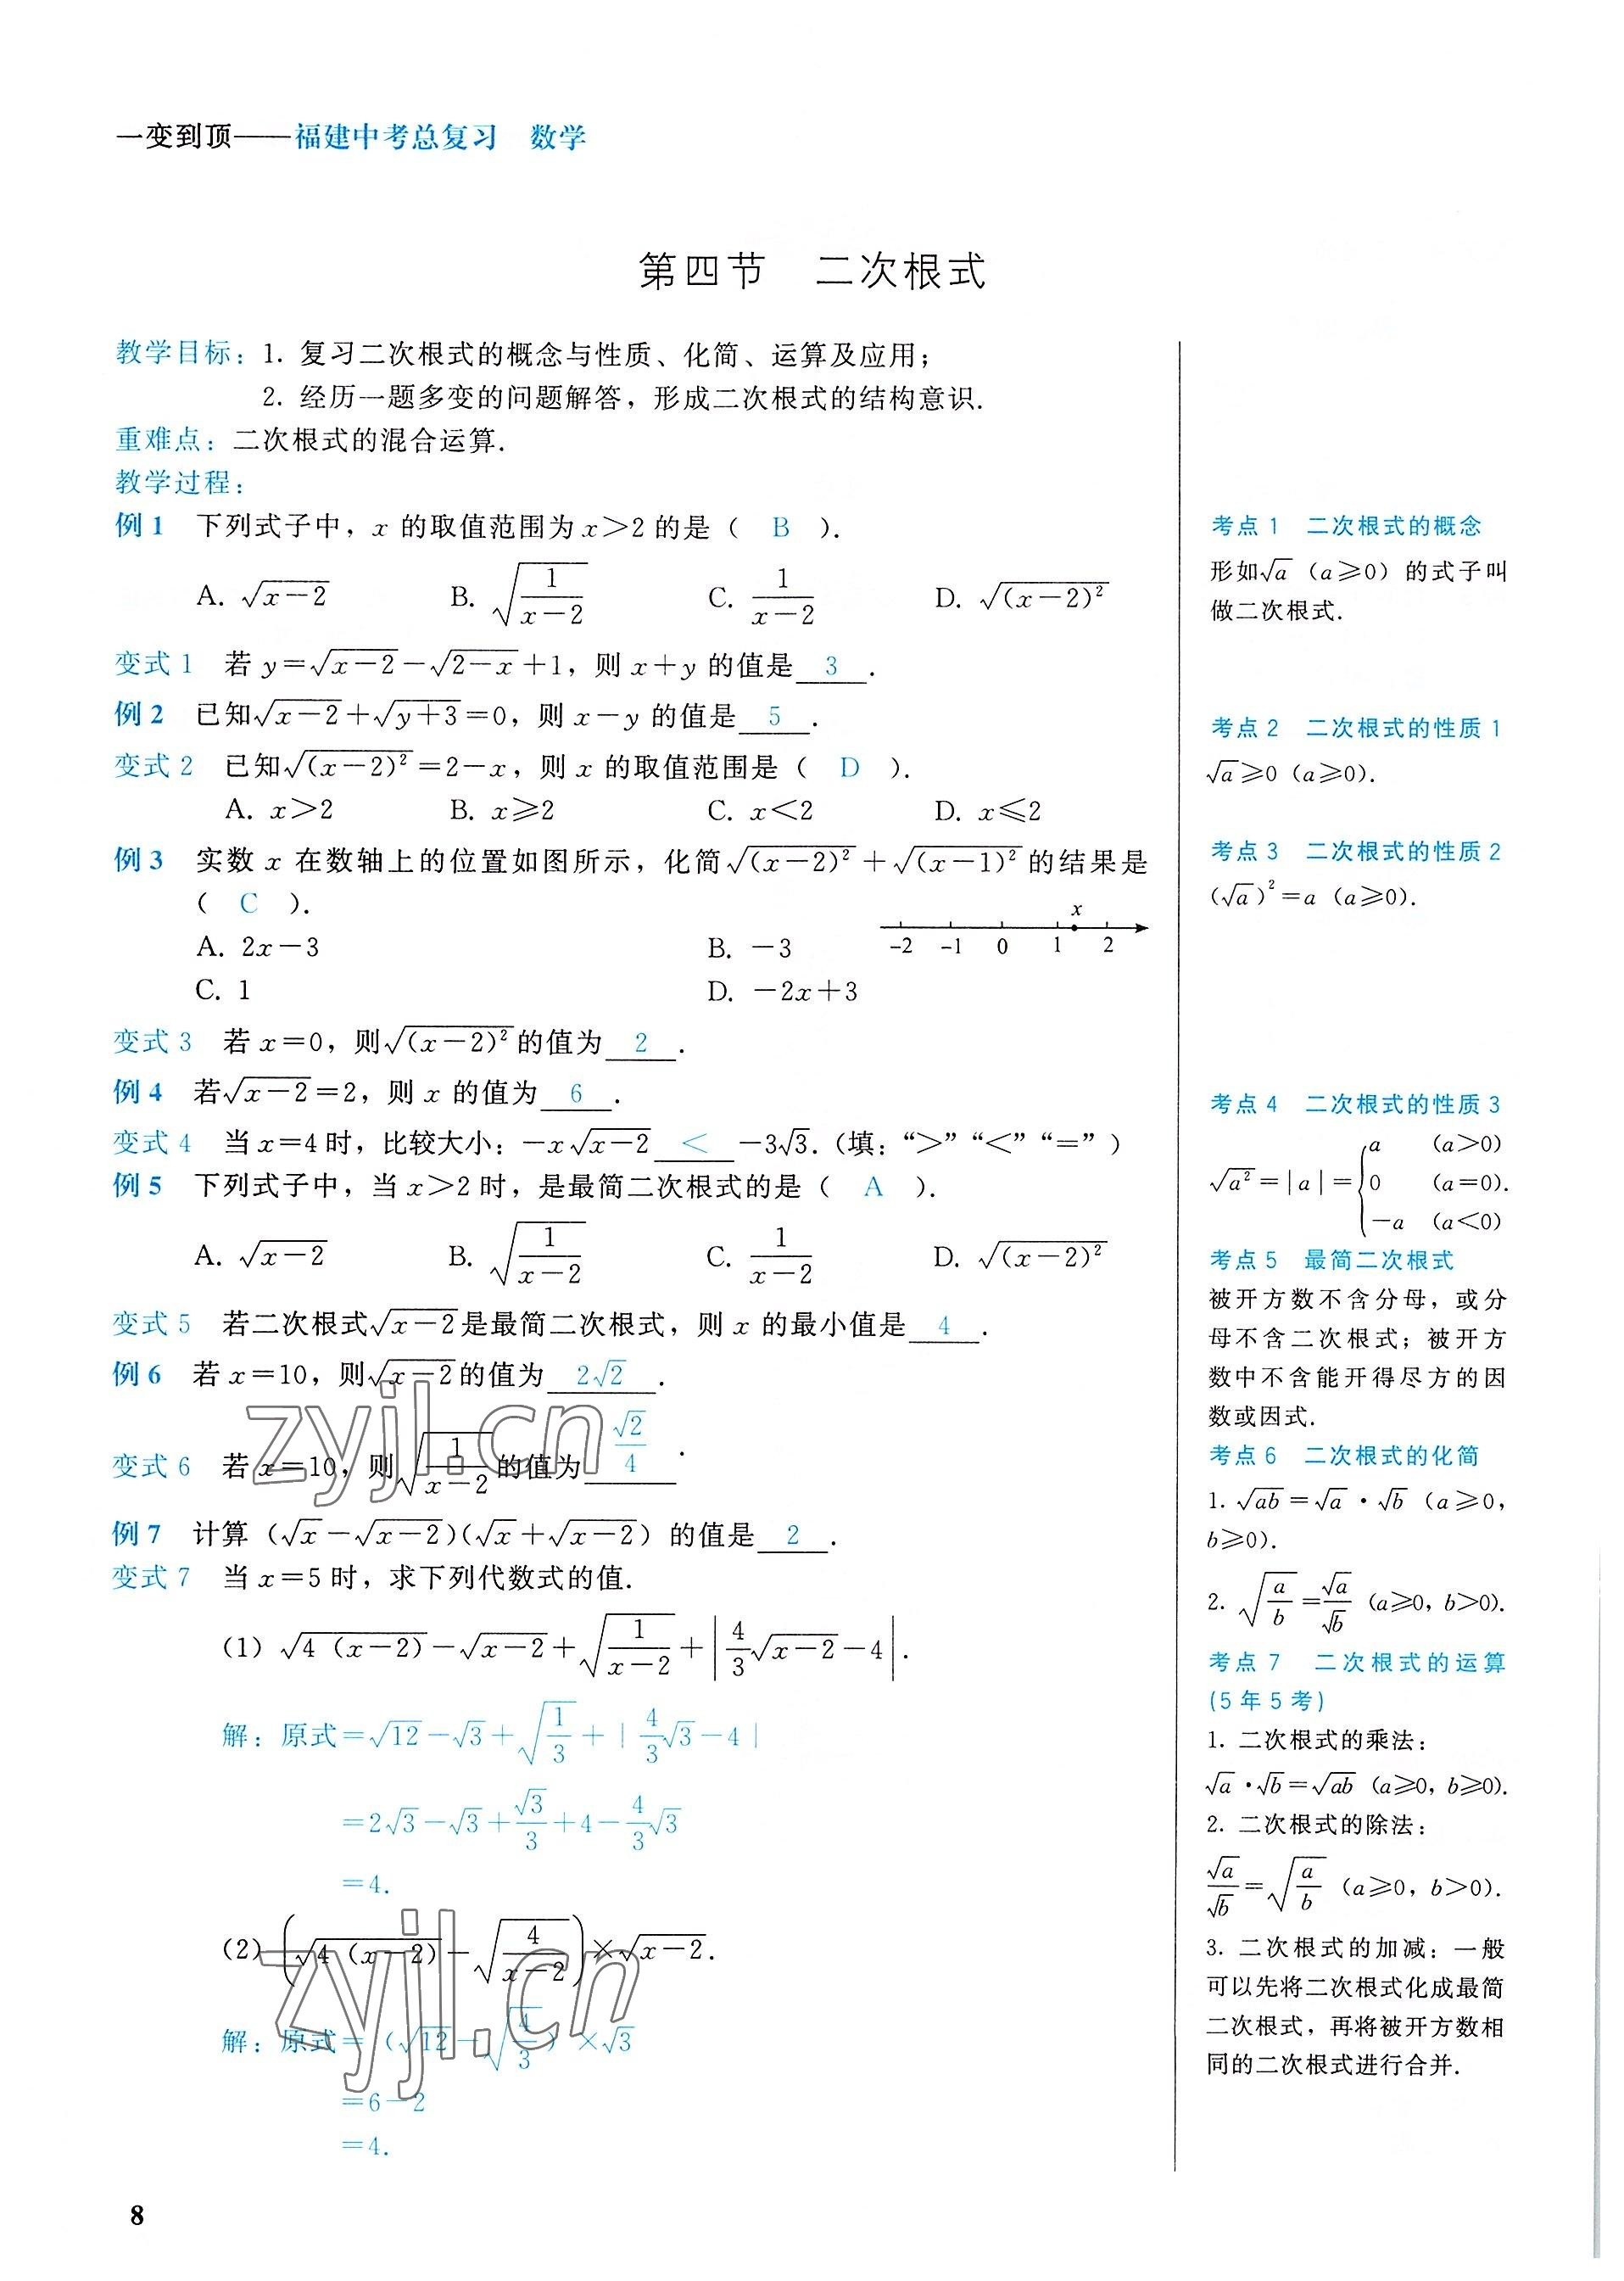 一变到顶——福建中考总复习 数学
第四节 二次根式
教学目标：1. 复习二次根式的概念与性质、化简、运算及应用；
2. 经历一题多变的问题解答，形成二次根式的结构意识.
重难点：二次根式的混合运算.
教学过程：
例 1 下列式子中，x 的取值范围为 x＞2 的是（ B ）.
A. √(x－2) B. √(1/(x－2)) C. 1/(x－2) D. √((x－2)²)
变式 1 若 y＝√(x－2)－√(2－x)＋1，则 x＋y 的值是 3 .
例 2 已知√(x－2)＋√(y＋3)＝0，则 x－y 的值是 5 .
变式 2 已知√((x－2)²)＝2－x，则 x 的取值范围是（ D ）.
A. x＞2 B. x⩾2 C. x＜2 D. x⩽2
例 3 实数 x 在数轴上的位置如图所示，化简√((x－2)²)＋√((x－1)²)的结果是
（ C ）.
x
-2 -1 0 1 2
A. 2x－3 B. －3
C. 1 D. －2x＋3
变式 3 若 x＝0，则√((x－2)²)的值为 2 .
例 4 若√(x－2)＝2，则 x 的值为 6 .
变式 4 当 x＝4 时，比较大小：－x√(x－2) ＜ －3√3.（填：“＞”“＜”“＝”）
例 5 下列式子中，当 x＞2 时，是最简二次根式的是（ A ）.
A. √(x－2) B. √(1/(x－2)) C. 1/(x－2) D. √((x－2)²)
变式 5 若二次根式√(x－2)是最简二次根式，则 x 的最小值是 4 .
例 6 若 x＝10，则√(x－2)的值为 2√2 .
变式 6 若 x＝10，则√(1/(x－2))的值为 √2/4 .
例 7 计算（√x－√(x－2)）（√x＋√(x－2)）的值是 2 .
变式 7 当 x＝5 时，求下列代数式的值.
(1) √(4（x－2）)－√(x－2)＋√(1/(x－2))＋|4/3√(x－2)－4|.
解：原式＝√12－√3＋√(1/3)＋|4/3√3－4|
＝2√3－√3＋√3/3＋4－4/3√3
＝4.
(2) (√(4（x－2）)－√(4/(x－2)))×√(x－2).
解：原式＝（√12－√(4/3)）×√3
＝6－2
＝4.
考点 1 二次根式的概念
形如√a（a⩾0）的式子叫
做二次根式.
考点 2 二次根式的性质 1
√a⩾0（a⩾0）.
考点 3 二次根式的性质 2
(√a)²＝a（a⩾0）.
考点 4 二次根式的性质 3
a （a＞0）
√(a²)＝|a|＝{0 （a＝0）.
－a （a＜0）
考点 5 最简二次根式
被开方数不含分母，或分
母不含二次根式；被开方
数中不含能开得尽方的因
数或因式.
考点 6 二次根式的化简
1. √(ab)＝√a·√b（a⩾0，
b⩾0）.
2. √(a/b)＝√a/√b（a⩾0，b＞0）.
考点 7 二次根式的运算
(5 年 5 考)
1. 二次根式的乘法：
√a·√b＝√(ab)（a⩾0，b⩾0）.
2. 二次根式的除法：
√a/√b＝√(a/b)（a⩾0，b＞0）.
3. 二次根式的加减：一般
可以先将二次根式化成最简
二次根式，再将被开方数相
同的二次根式进行合并.
zyjl.cn
zyjl.cn
8